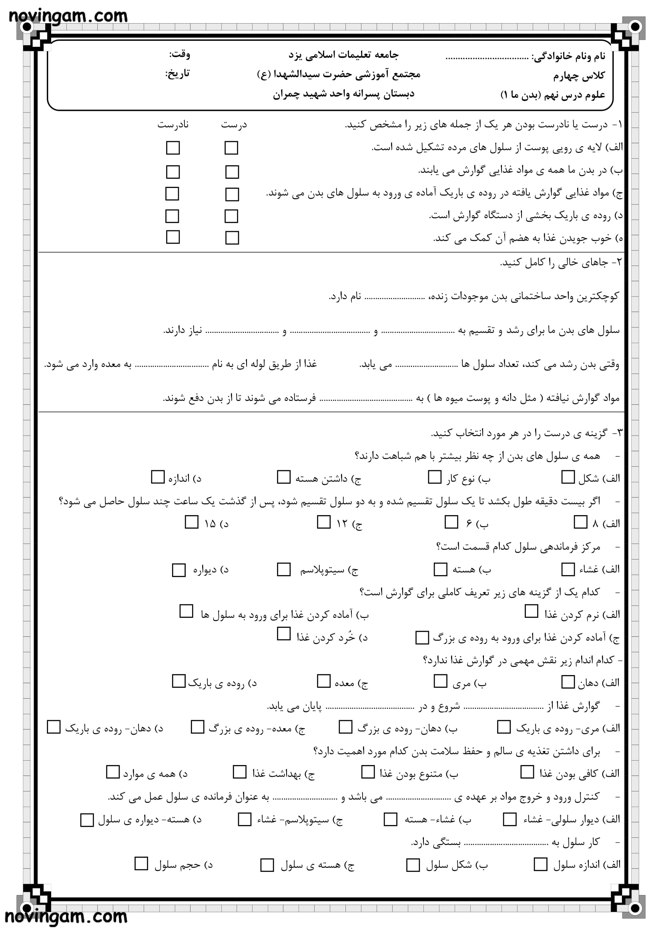 novingam.com
نام ونام خانوادگی: .................................. جامعه تعلیمات اسلامی یزد وقت:
کلاس چهارم مجتمع آموزشی حضرت سیدالشهدا (ع) تاریخ:
علوم درس نهم (بدن ما ۱) دبستان پسرانه واحد شهید چمران
۱- درست یا نادرست بودن هر یک از جمله های زیر را مشخص کنید. درست نادرست
الف) لایه ی رویی پوست از سلول های مرده تشکیل شده است.
ب) در بدن ما همه ی مواد غذایی گوارش می یابند.
ج) مواد غذایی گوارش یافته در روده ی باریک آماده ی ورود به سلول های بدن می شوند.
د) روده ی باریک بخشی از دستگاه گوارش است.
ه) خوب جویدن غذا به هضم آن کمک می کند.
۲- جاهای خالی را کامل کنید.
کوچکترین واحد ساختمانی بدن موجودات زنده، .......................... نام دارد.
سلول های بدن ما برای رشد و تقسیم به ................................ و .................................. و ................................ نیاز دارند.
وقتی بدن رشد می کند، تعداد سلول ها ........................... می یابد. غذا از طریق لوله ای به نام ................................ به معده وارد می شود.
مواد گوارش نیافته ( مثل دانه و پوست میوه ها ) به ........................................ فرستاده می شوند تا از بدن دفع شوند.
۳- گزینه ی درست را در هر مورد انتخاب کنید.
- همه ی سلول های بدن از چه نظر بیشتر با هم شباهت دارند؟
الف) شکل ب) نوع کار ج) داشتن هسته د) اندازه
- اگر بیست دقیقه طول بکشد تا یک سلول تقسیم شده و به دو سلول تقسیم شود، پس از گذشت یک ساعت چند سلول حاصل می شود؟
الف) ۸ ب) ۶ ج) ۱۲ د) ۱۵
- مرکز فرماندهی سلول کدام قسمت است؟
الف) غشاء ب) هسته ج) سیتوپلاسم د) دیواره
- کدام یک از گزینه های زیر تعریف کاملی برای گوارش است؟
الف) نرم کردن غذا ب) آماده کردن غذا برای ورود به سلول ها
ج) آماده کردن غذا برای ورود به روده ی بزرگ د) خُرد کردن غذا
- کدام اندام زیر نقش مهمی در گوارش غذا ندارد؟
الف) دهان ب) مری ج) معده د) روده ی باریک
- گوارش غذا از ................................... شروع و در ...................................... پایان می یابد.
الف) مری- روده ی باریک ب) دهان- روده ی بزرگ ج) معده- روده ی بزرگ د) دهان- روده ی باریک
- برای داشتن تغذیه ی سالم و حفظ سلامت بدن کدام مورد اهمیت دارد؟
الف) کافی بودن غذا ب) متنوع بودن غذا ج) بهداشت غذا د) همه ی موارد
- کنترل ورود و خروج مواد بر عهده ی ............................ می باشد و ............................ به عنوان فرمانده ی سلول عمل می کند.
الف) دیوار سلولی- غشاء ب) غشاء- هسته ج) سیتوپلاسم- غشاء د) هسته- دیواره ی سلول
- کار سلول به ..................................... بستگی دارد.
الف) اندازه سلول ب) شکل سلول ج) هسته ی سلول د) حجم سلول
novingam.com